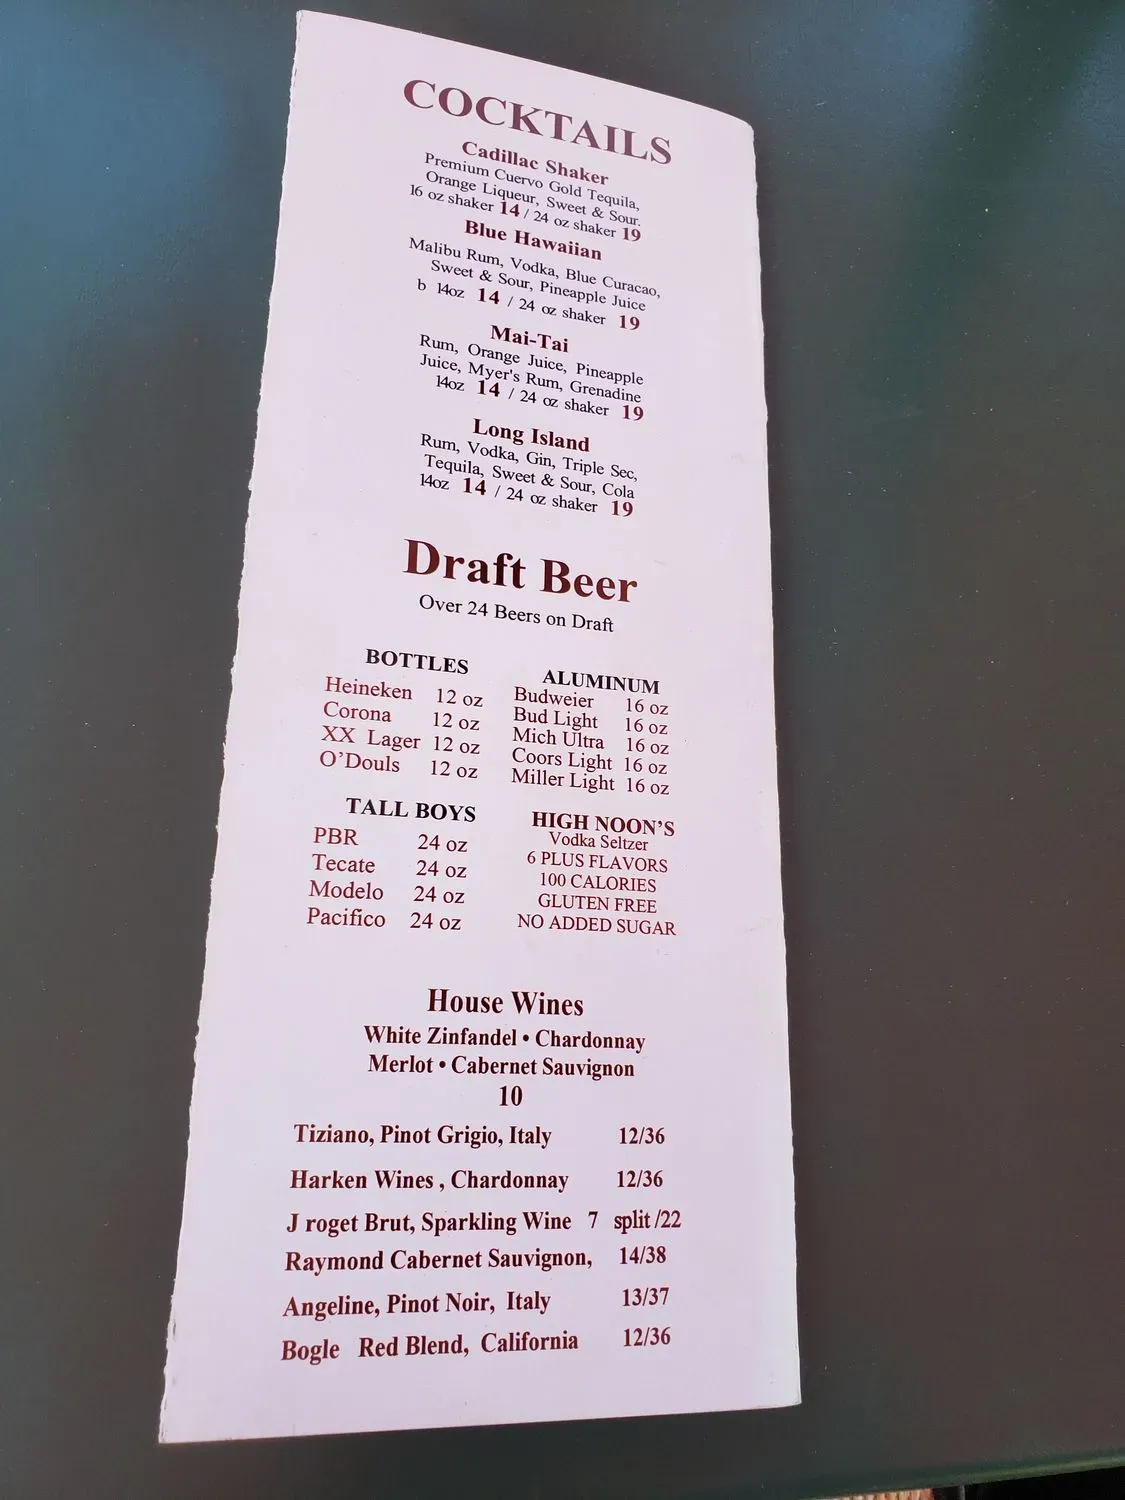 COCKTAILS
Cadillac Shaker
Premium Cuervo Gold Tequila,
Orange Liqueur, Sweet & Sour.
16 oz shaker 14 / 24 oz shaker 19
Blue Hawaiian
Malibu Rum, Vodka, Blue Curacao,
Sweet & Sour, Pineapple Juice
b 14oz 14 / 24 oz shaker 19
Mai-Tai
Rum, Orange Juice, Pineapple
Juice, Myer's Rum, Grenadine
14oz 14 / 24 oz shaker 19
Long Island
Rum, Vodka, Gin, Triple Sec,
Tequila, Sweet & Sour, Cola
14oz 14 / 24 oz shaker 19
Draft Beer
Over 24 Beers on Draft
BOTTLES
Heineken 12 oz
Corona 12 oz
XX Lager 12 oz
O'Douls 12 oz
ALUMINUM
Budweier 16 oz
Bud Light 16 oz
Mich Ultra 16 oz
Coors Light 16 oz
Miller Light 16 oz
TALL BOYS
PBR 24 oz
Tecate 24 oz
Modelo 24 oz
Pacifico 24 oz
HIGH NOON'S
Vodka Seltzer
6 PLUS FLAVORS
100 CALORIES
GLUTEN FREE
NO ADDED SUGAR
House Wines
White Zinfandel • Chardonnay
Merlot • Cabernet Sauvignon
10
Tiziano, Pinot Grigio, Italy 12/36
Harken Wines , Chardonnay 12/36
J roget Brut, Sparkling Wine 7 split /22
Raymond Cabernet Sauvignon, 14/38
Angeline, Pinot Noir, Italy 13/37
Bogle Red Blend, California 12/36